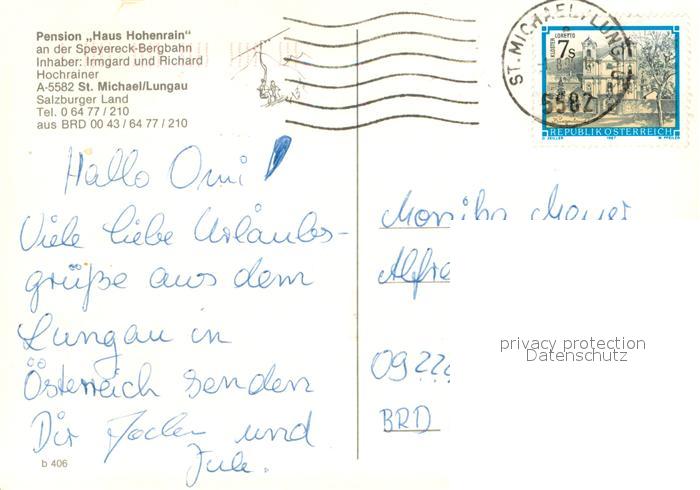 Pension „Haus Hohenrain"
an der Speyereck-Bergbahn
Inhaber: Irmgard und Richard
Hochrainer
A-5582 St. Michael/Lungau
Salzburger Land
Tel. 0 64 77 / 210
aus BRD 00 43 / 64 77 / 210
Hallo Omi!
Viele liebe Urlaubs-
grüße aus dem
Lungau in
Österreich senden
Dir und
b 406
ST. MICHAEL/LUNG
5582
KLOSTER LORETTO
7s
REPUBLIK ÖSTERREICH
Alfre
BRD
privacy protection
Datenschutz